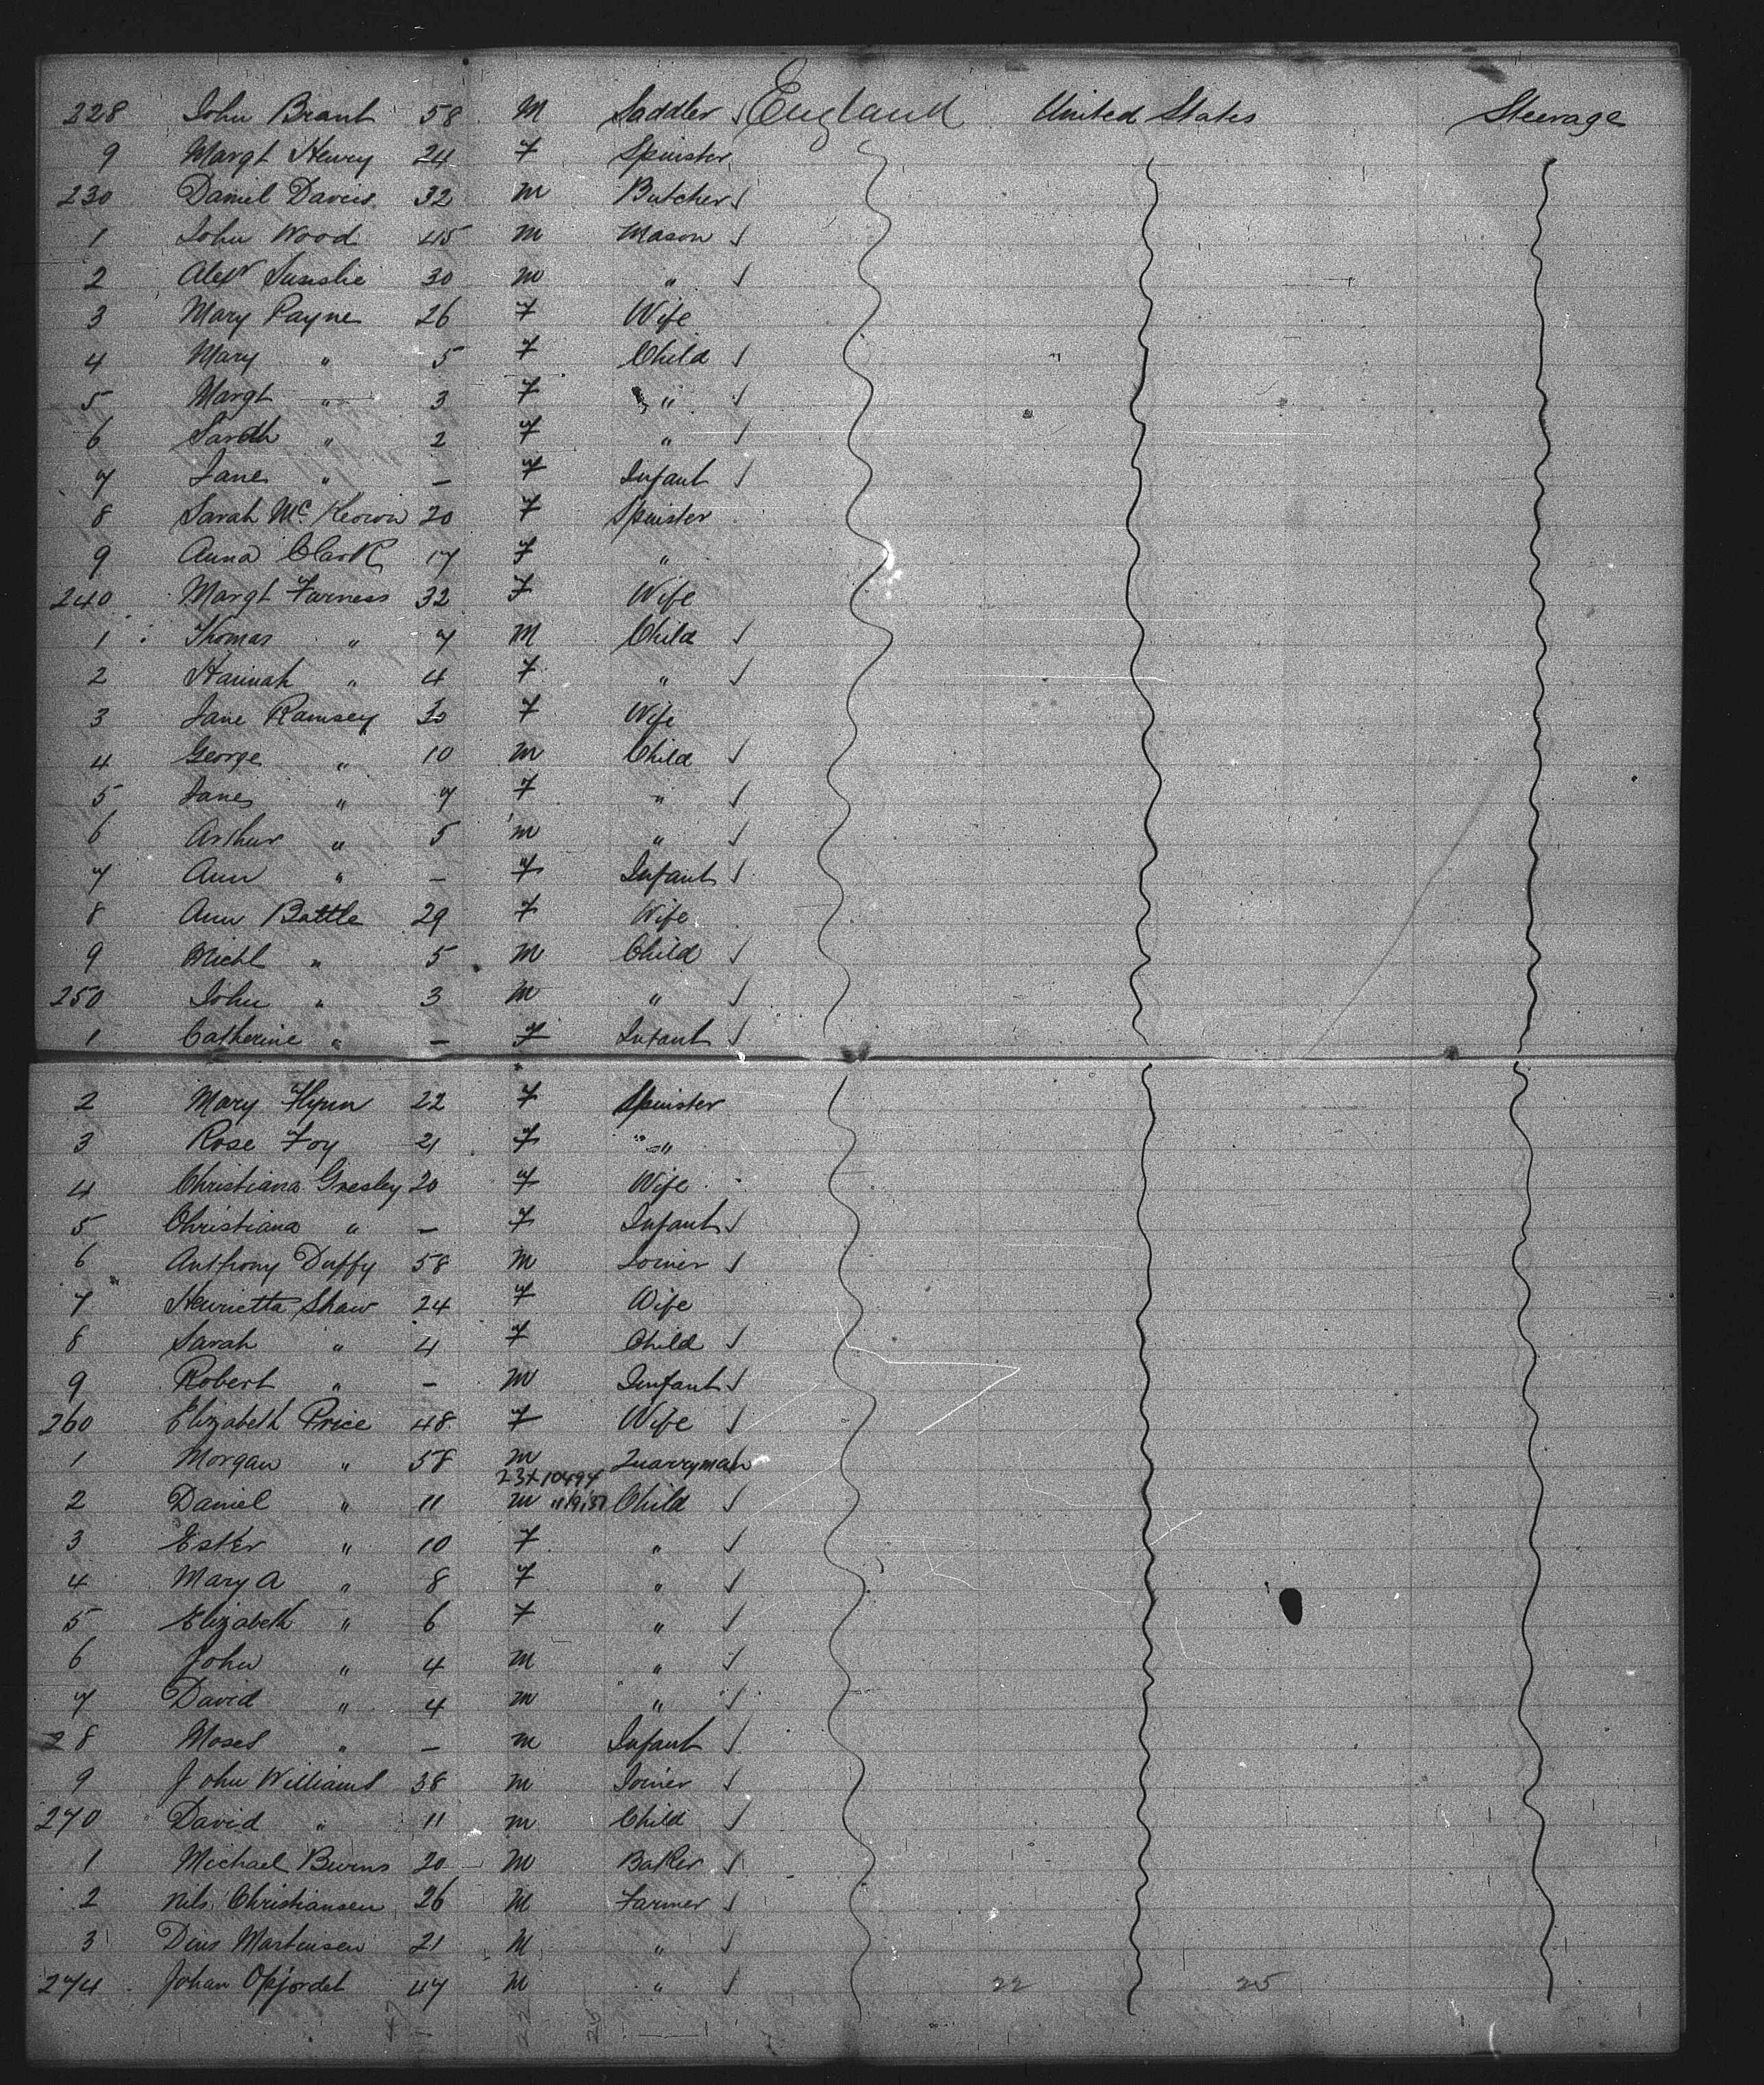 228 John Brant 58 M Saddler England United States Steerage
9 Margt Henry 24 F Spinster
230 Daniel Davies 32 M Butcher
1 John Wood 45 M Mason
2 Alexr 30 M "
3 Mary Payne 26 F Wife
4 Mary " 5 F Child
5 Margt " 3 F "
6 Sarah " 2 F "
7 Jane " — F Infant
8 Sarah McKeown 20 F Spinster
9 Anna Clark 17 F "
240 Margt Furness 32 F Wife
1 Thomas " 7 M Child
2 Hannah " 4 F "
3 Jane Ramsey 30 F Wife
4 George " 10 M Child
5 Jane " 7 F "
6 Arthur " 5 M "
7 Ann " — F Infant
8 Ann Battle 29 F Wife
9 Michl " 5 M Child
250 John " 3 M "
1 Catherine " — F Infant
2 Mary Flynn 22 F Spinster
3 Rose Foy 21 F "
4 Christiana Gresley 20 F Wife
5 Christiana " — F Infant
6 Anthony Duffy 58 M Joiner
7 Henrietta Shaw 24 F Wife
8 Sarah " 4 F Child
9 Robert " — M Infant
260 Elizabeth Price 48 F Wife
1 Morgan " 58 M Quarryman
23x10494
2 Daniel " 11 M Child
3 Ester " 10 F "
4 Mary A " 8 F "
5 Elizabeth " 6 F "
6 John " 4 M "
7 David " 4 M "
28 Moses " — M Infant
9 John Williams 38 M Joiner
270 David " 11 M Child
1 Michael Burns 20 M Baker
2 Nils Christiansen 26 M Farmer
3 Martensen 21 M "
274 Johan Opjordet 47 M " 22 25